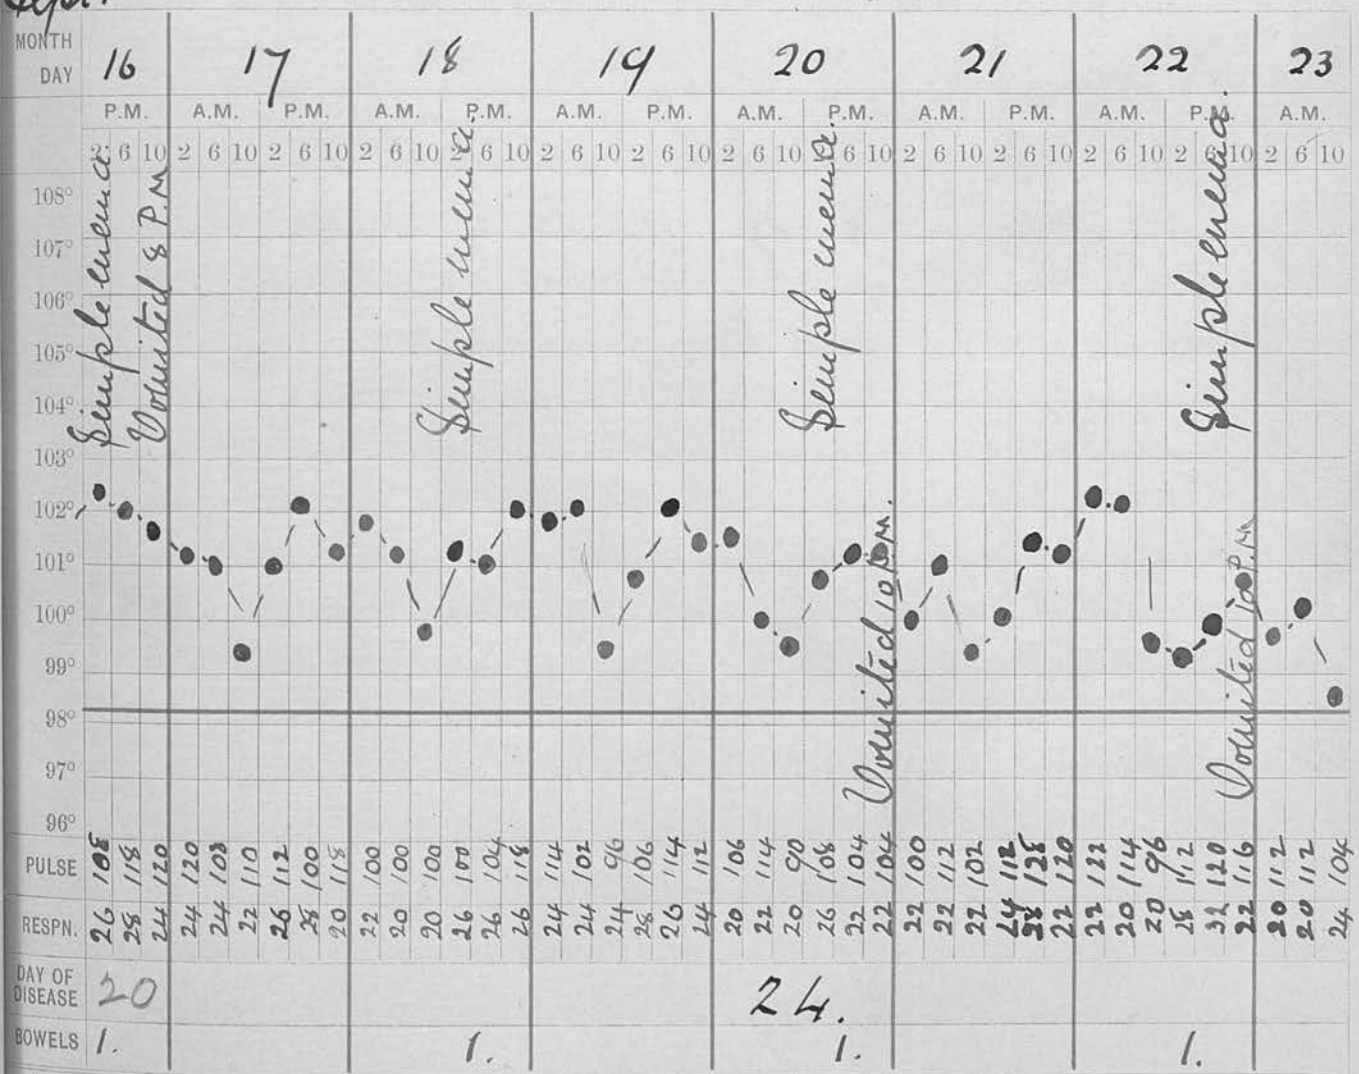 Sept.
MONTH
DAY 16 17 18 19 20 21 22 23
P.M. A.M. P.M. A.M. P.M. A.M. P.M. A.M. P.M. A.M. P.M. A.M. P.M. A.M.
2 6 10 2 6 10 2 6 10 2 6 10 2 6 10 2 6 10 2 6 10 2 6 10 2 6 10 2 6 10 2 6 10 2 6 10 2 6 10 2 6 10
Simple enema.
Vomited 8 P.M
Simple enema.
Simple enema.
Vomited 10 P.M.
Simple enema.
Vomited 10 P.M
108°
107°
106°
105°
104°
103°
102°
101°
100°
99°
98°
97°
96°
PULSE 108 118 120 120 108 110 112 100 118 100 100 100 100 104 118 114 102 96 106 114 112 106 114 90 108 104 104 100 112 102 112 128 120 122 114 96 112 120 116 112 112 104
RESPN. 26 28 24 24 24 22 26 28 20 22 20 20 26 26 26 24 24 24 28 26 24 20 22 20 26 22 22 22 22 22 24 28 22 22 20 20 28 32 22 20 20 24
DAY OF
DISEASE 20 24.
BOWELS 1. 1. 1. 1.